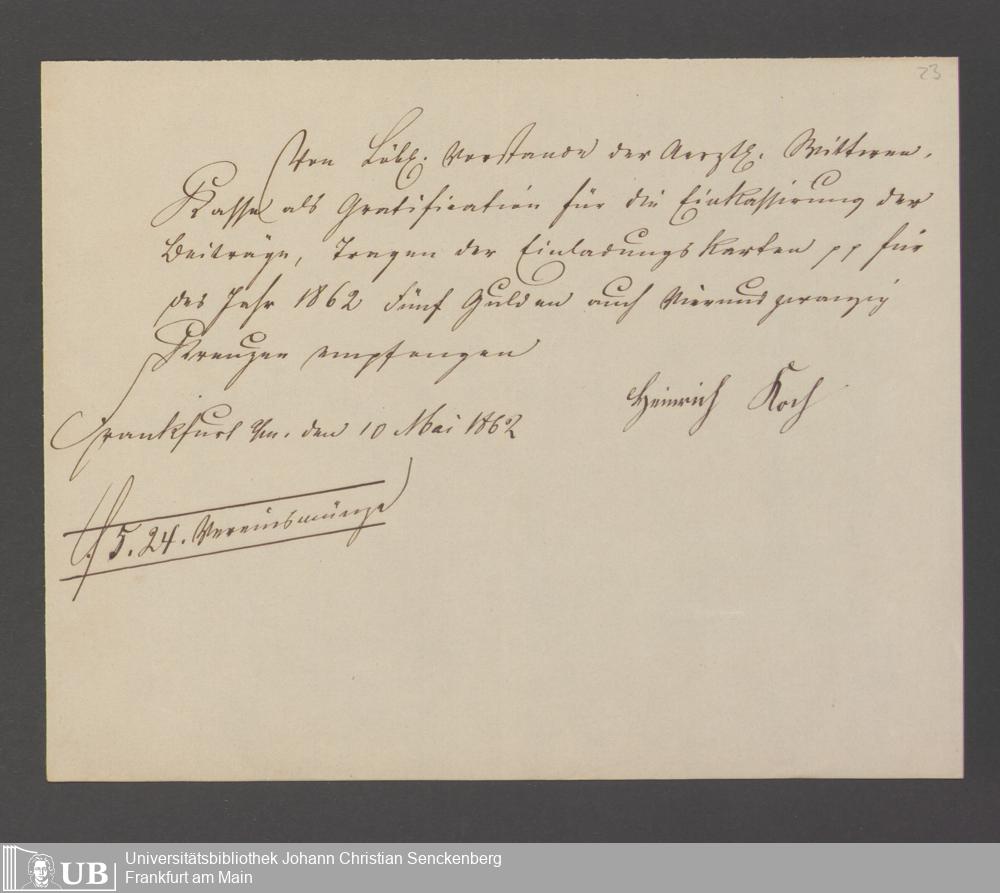 23
Von Löbl. Vorstande der Aerztl. Wittwen-
Kasse als Gratification für die Einkassirung der
Beiträge, Tragen der Einladungskarten pp für
das Jahr 1862 Fünf Gulden auch Vierundzwanzig
Kreuzer empfangen
Heinrich Koch
Frankfurt a/m. den 10 Mai 1862
f 5. 24. Vereinsmünze
UB
Universitätsbibliothek Johann Christian Senckenberg
Frankfurt am Main